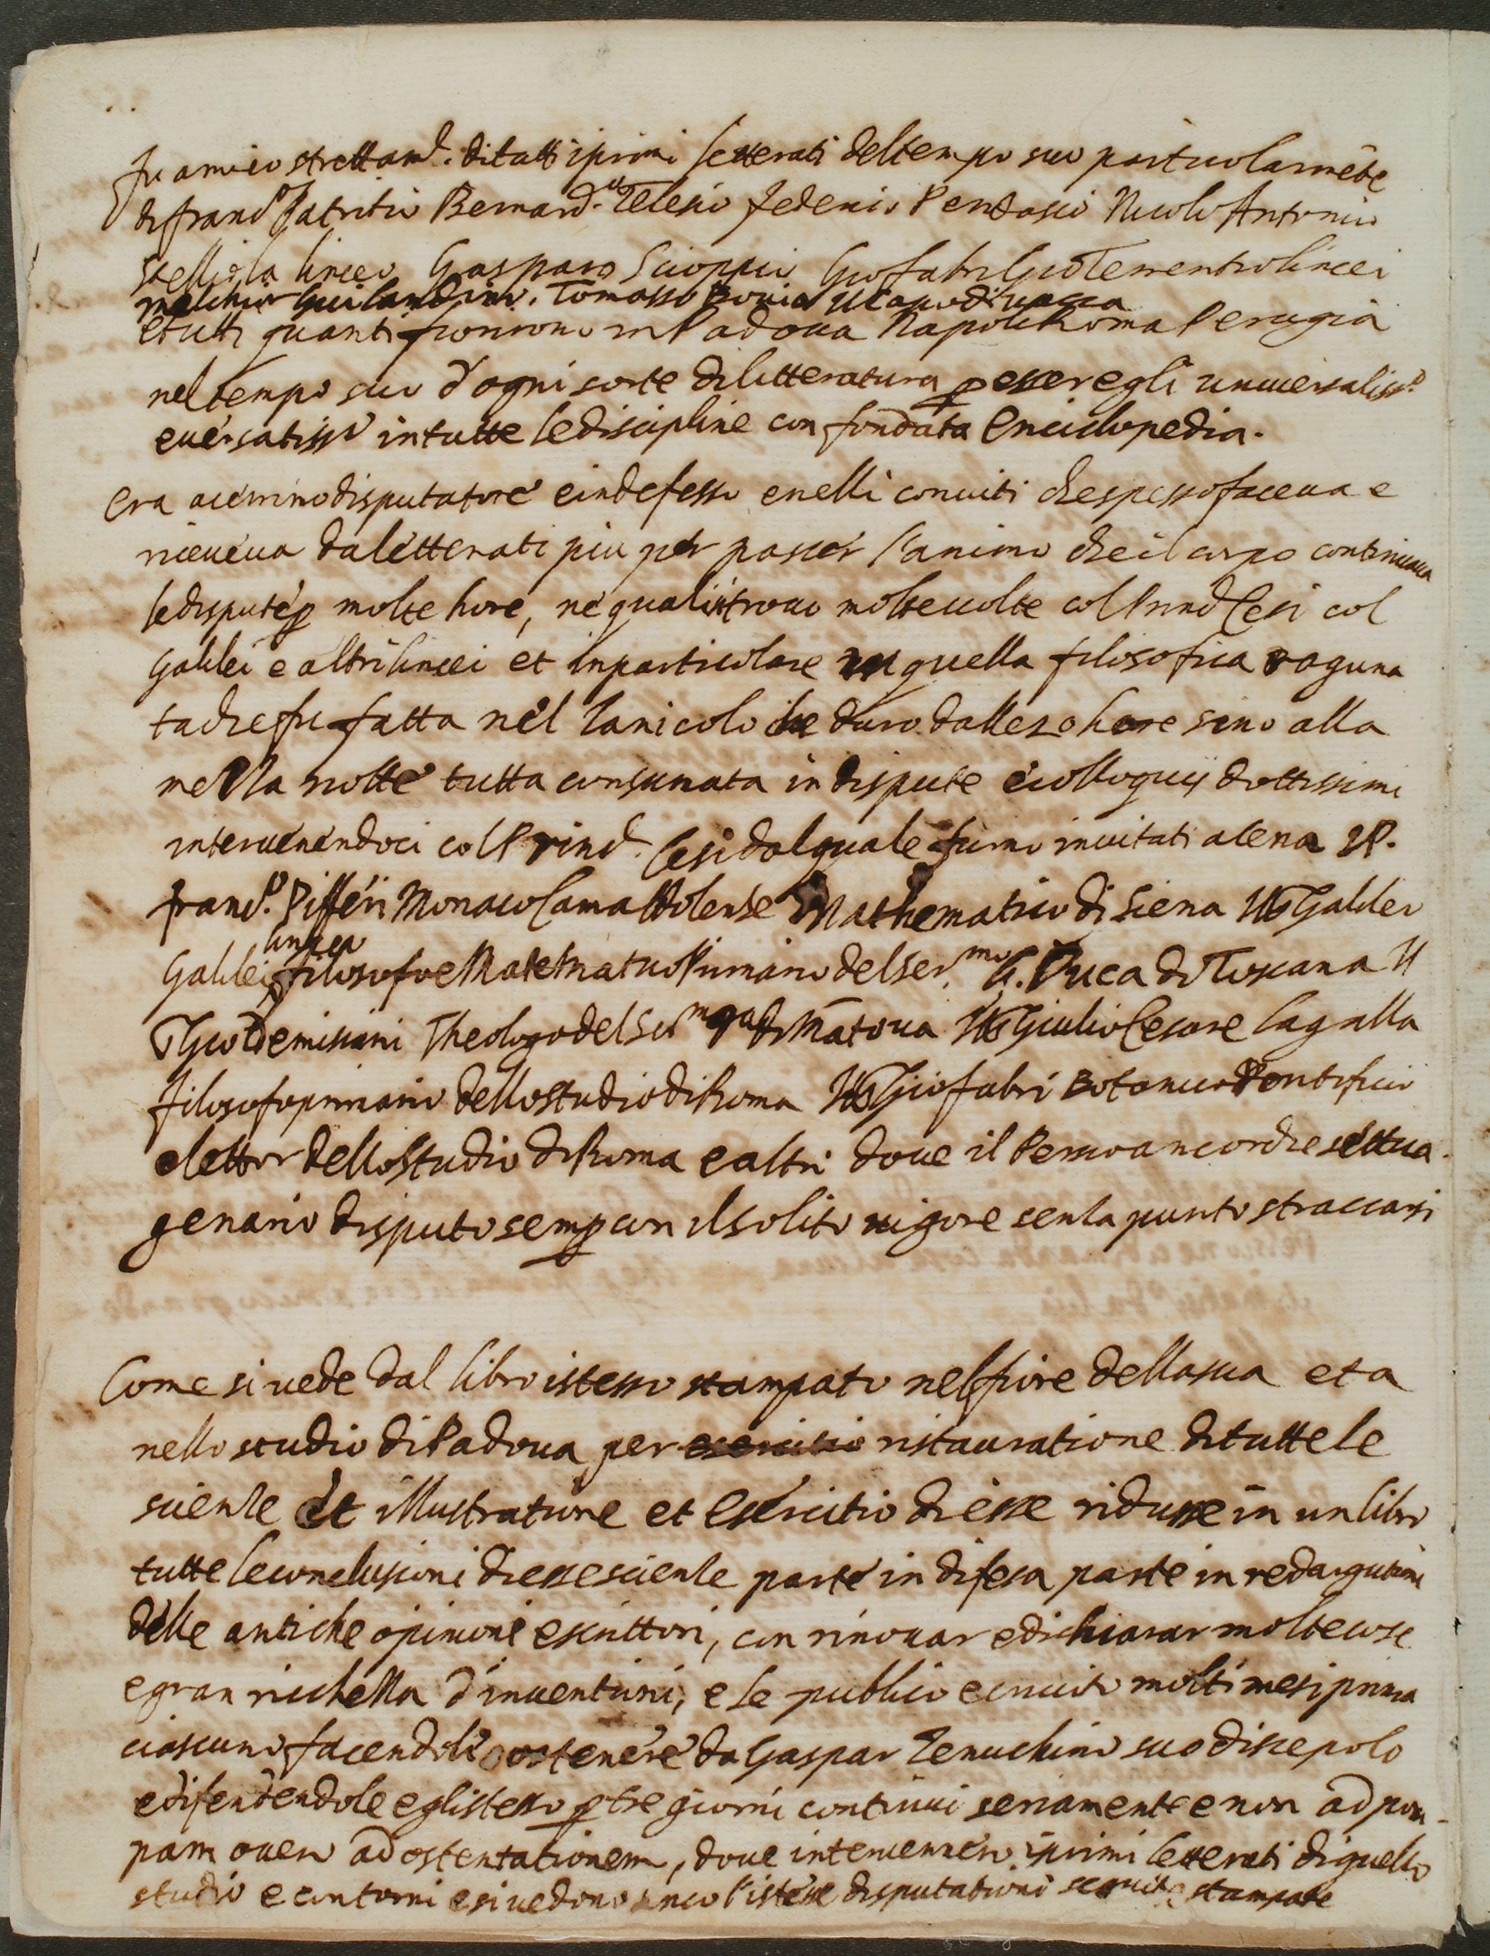 fu amico strettam.te di tutti i primi letterati del tempo suo particolarmēte
di franc.o Patritio Bernard.o Telesio federico Pendasio Nicolo Antonio
Stelliola linceo Gasparo Scioppio Gio fabri Gio Terrentio lincei
melchior Guilandini. Tomasso Bovio il capodivacca
e tutti quanti fiorirono in Padova Napoli Roma Perugia
nel tempo suo d'ogni sorte di letteratura p esser egli universaliss.o
e versatiss.o in tutte le discipline con fondata Enciclopedia.
era acerrimo disputatore e indefesso e nelli conviti che spesso faceva e
riceveva da letterati piu per pascer l'animo che il corpo continuava
le dispute p molte hore, ne quali si trovo molte volte col Princ. Cesi col
Galilei e altri lincei et in particolare in quella filosofica raguna
ta che fu fatta nel Ianicolo che duro dalle 20 hore sino alla
mezza notte tutta consumata in dispute e colloquij dottissimi
intervenendoci col Princ. Cesi dal quale furno invitati a cena il P.
franc.o Pifferi Monaco Camaldolense Mathematico di Siena Il S Galileo
linceo
Galilei filosofo e Matematico Primario del Ser.mo G. Duca di Toscana Il
S Gio Demisiani Theologo del Ser.mo di Mātova Il S Giulio Cesare Lagalla
filosofo primario dello studio di Roma Il S Gio fabri Botanico Pontificio
e lettor dello Studio di Roma e altri dove il Persio ancorche settua-
genario disputo semp con il solito vigore senza punto straccarsi
Come si vede dal libro istesso stampato nel fiore della sua eta
nello studio di Padova per esercitio ristauratione di tutte le
scienze et illustratione et esercitio di esse ridusse in un libro
tutte le conclusioni di esse scienze parte in difesa parte in redargutione
delle antiche opinioni e scrittori, con rinovar e dichiarar molte cose
e gran richezza d'inventioni, e le publico e invito molti mesi prima
ciascuno facendole sostenere da Gaspar Zenuchino suo discepolo
e difendendole egli stesso p tre giorni continui seriamente e non ad pom-
pam overo ad ostentationem, dove intervennero i primi letterati di quello
studio e contorni e si vedono anco l'istesse disputationi seguite stampate